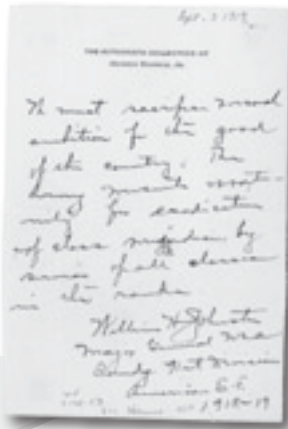 THE AUTOGRAPH COLLECTION OF
We must sacrifice personal
ambition for the good
of the country. The
Army presents opportu-
nity for eradication
of class prejudice by
service of all classes
in the ranks
William H Johnston
Major General USA
Comdg 91st Division
American E.F.
1918-19